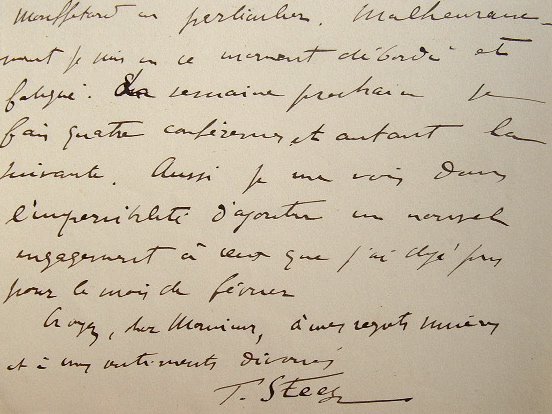 Mouffetard en particulier. Malheureuse-
ment je suis en ce moment débordé et
fatigué. La semaine prochaine je
fais quatre conférences et autant la
suivante. Aussi je me vois dans
l'impossibilité d'ajouter un nouvel
engagement à ceux que j'ai déjà pris
pour le mois de février
Croyez, cher Monsieur, à mes regrets sincères
et à mes sentiments dévoués
T. Steeg